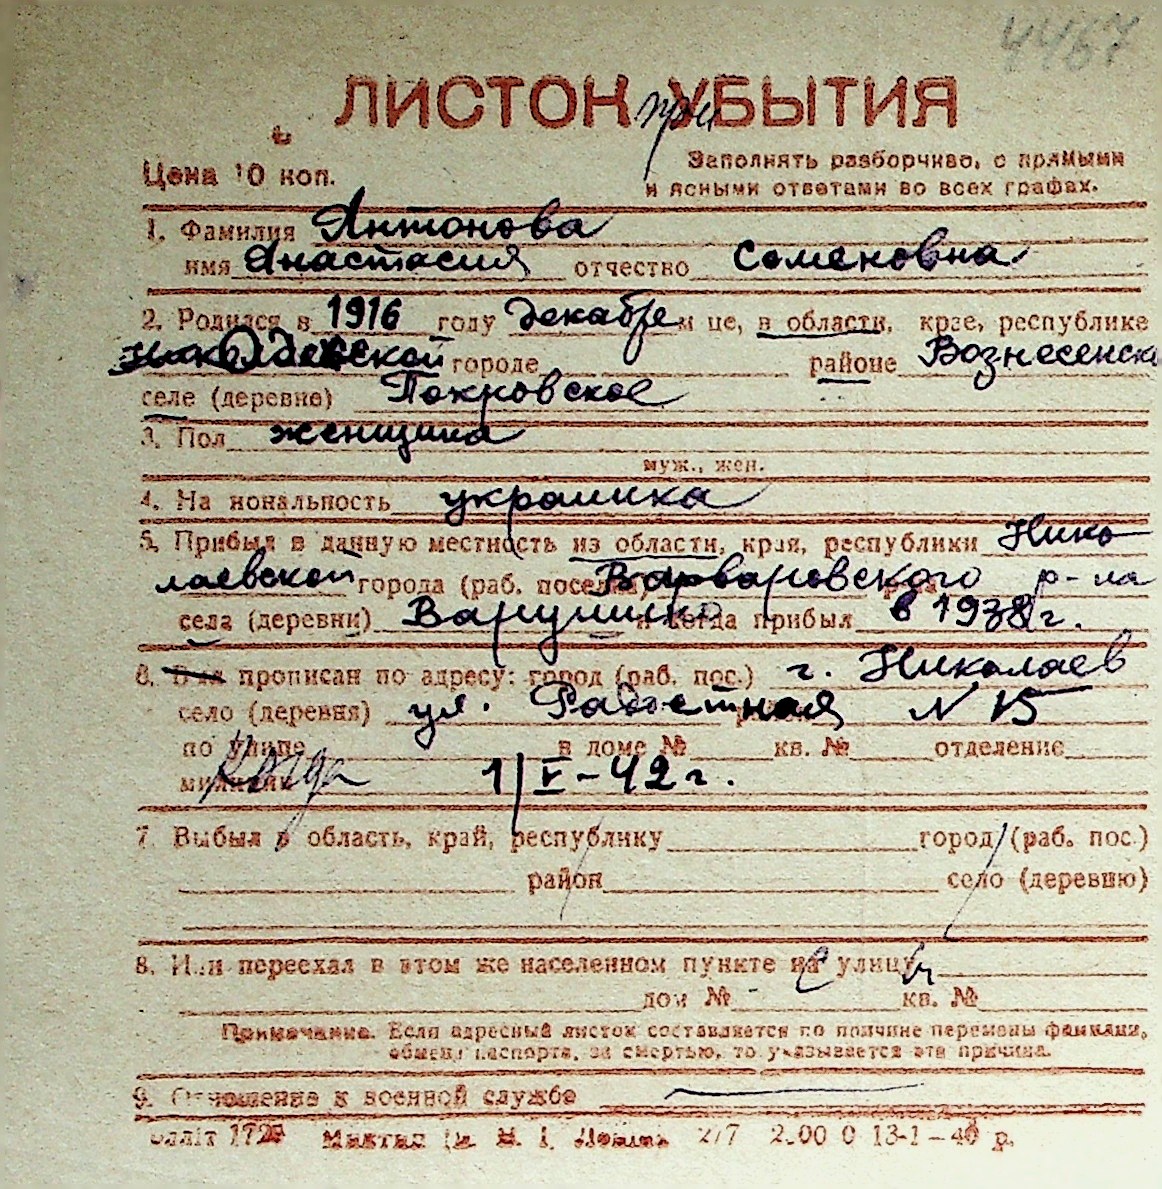 4467
ЛИСТОК УБЫТИЯ
при
Цена 10 коп.
Заполнять разборчиво, с прямыми
и ясными ответами во всех графах.
1. Фамилия Антонова
имя Анастасия отчество Семеновна
2. Родился в 1916 году декабре м це, в области, крае, республике
Николаевской городе районе Вознесенск
селе (деревне) Покровское
3. Пол женщина
муж., жен.
4. На иональность украинка
5. Прибыл в данную местность из области, края, республики Нико
лаевской города (раб. поселка) Варваровского р-на
села (деревни) и когда прибыл в 1938 г.
6. Был прописан по адресу: город (раб. пос.) г. Николаев
село (деревня) ул. Радостная N 15
по улице в доме № кв. № отделение
милиции Когда 1/V-42 г.
7. Выбыл в область, край, республику город (раб. пос.)
район село (деревню)
8. Или переехал в этом же населенном пункте на улицу
дом № кв. №
Примечание. Если адресный листок составляется по причине перемены фамилии,
обмена паспорта, за смертью, то указывается эта причина.
9. Отношение к военной службе
1727 2/7 2.00 0 13-1-40 р.